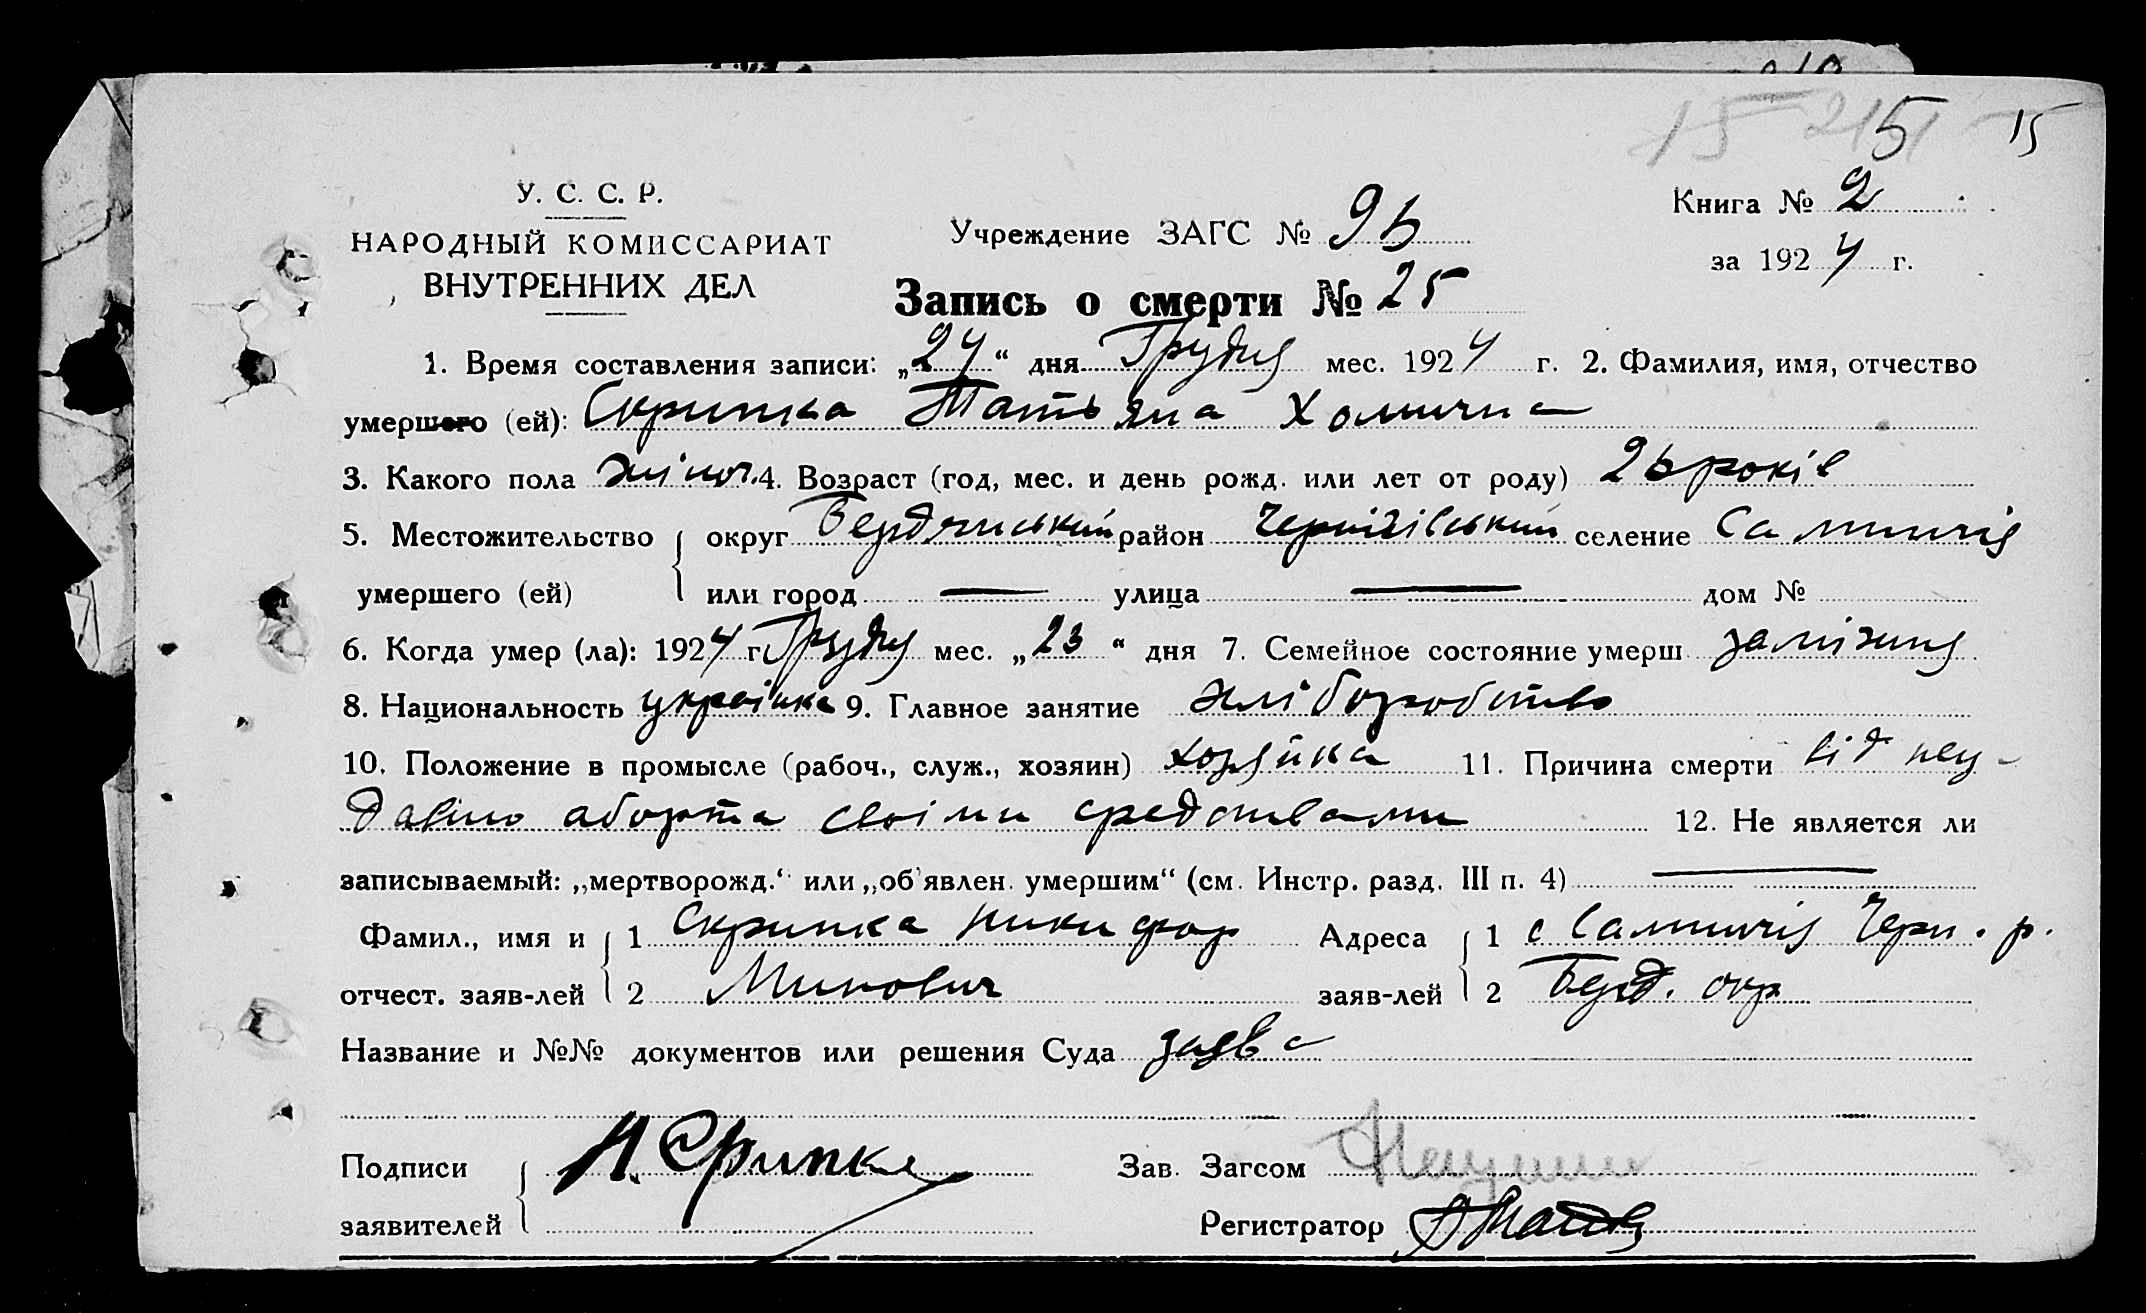 15 5 15
У. С. С. Р.
НАРОДНЫЙ КОМИССАРИАТ
ВНУТРЕННИХ ДЕЛ
Учреждение ЗАГС №
Книга № 2
за 1924 г.
Запись о смерти № 25
1. Время составления записи: „24“ дня Грудня мес. 1924 г. 2. Фамилия, имя, отчество
умершего (ей): Скрипка Татьяна Хомична
3. Какого пола жіноч. 4. Возраст (год, мес. и день рожд. или лет от роду) 26 років
5. Местожительство округ Бердянський район Чернігівський селение
умершего (ей) или город — улица — дом №
6. Когда умер (ла): 1924 г. Грудня мес. „23“ дня 7. Семейное состояние умерш заміжня
8. Национальность українка 9. Главное занятие хліборобство
10. Положение в промысле (рабоч., служ., хозяин) хозяйка 11. Причина смерти від неу-
давшо аборта своіми средствами 12. Не является ли
записываемый: „мертворожд.“ или „об'явлен. умершим“ (см. Инстр. разд. III п. 4) —
Фамил., имя и 1 Скрипка Никифор Адреса 1 с Черн. р.
отчест. заяв-лей 2 заяв-лей 2 Берд. окр
Название и №№ документов или решения Суда заява
Подписи Н. Скрипка Зав. Загсом
заявителей Регистратор